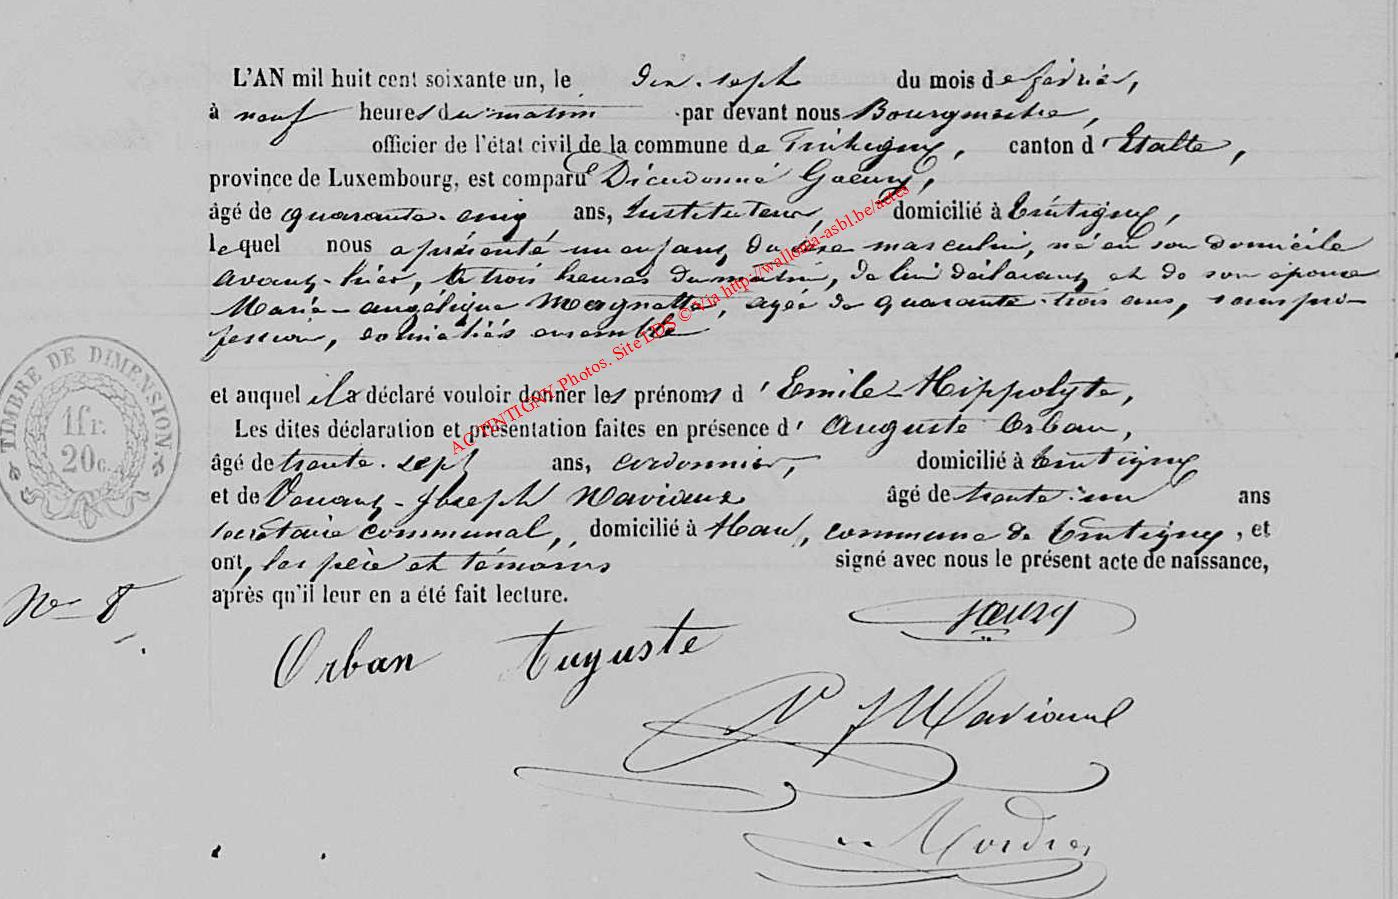 L'AN mil huit cent soixante un, le dix-sept du mois de février,
à neuf heures du matin par devant nous Bourgmestre,
officier de l'état civil de la commune de Tintigny, canton d'Etalle,
province de Luxembourg, est comparu Dieudonné Goeury,
âgé de quarante-cinq ans, Instituteur, domicilié à Tintigny,
lequel nous a présenté un enfant du sexe masculin, né en son domicile
avant-hier, à trois heures du matin, de lui déclarant et de son épouse
Marie-angélique Magnette, agée de quarante-trois ans, sans pro-
fession, domiciliés ensemble
et auquel il a déclaré vouloir donner les prénoms d'Emile-Hippolyte,
Les dites déclaration et présentation faites en présence d'Auguste Orban,
âgé de trente-sept ans, cordonnier, domicilié à Tintigny
et de Venant-Joseph Maviaux âgé de trente-un ans
secrétaire communal, domicilié à Han, commune de Tintigny, et
ont, les père et témoins signé avec nous le présent acte de naissance,
après qu'il leur en a été fait lecture.
TIMBRE DE DIMENSION.
1 fr.
20c.
No 8
Goeury
Orban Auguste
V J Maviaux
AC TINTIGNY Photos. Site LDS © Via http://wallonia-asbl.be/actes